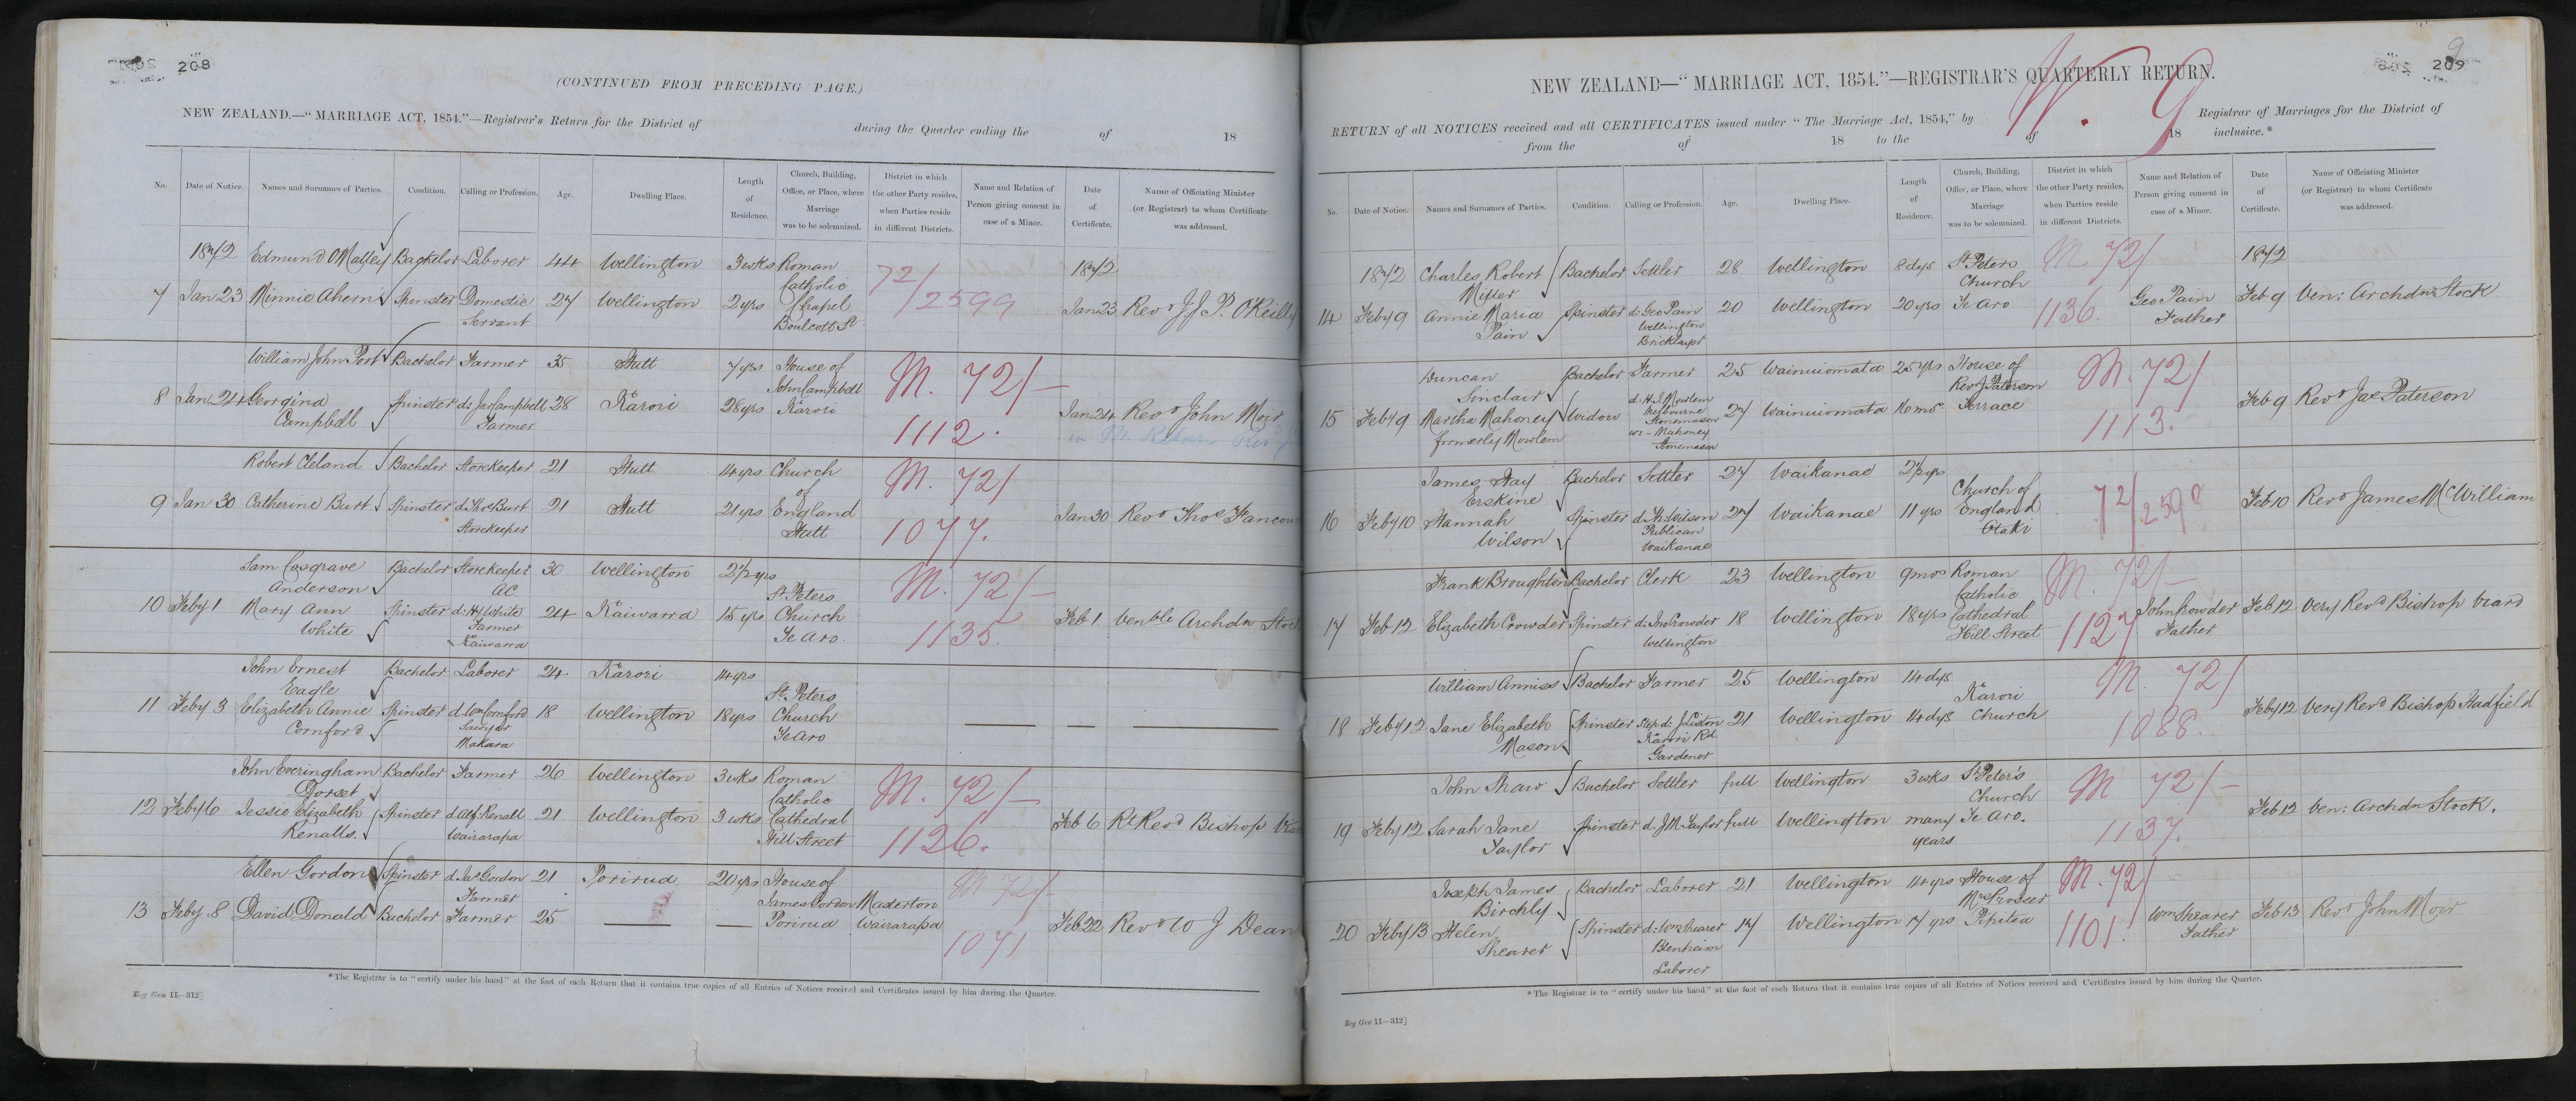 208
(CONTINUED FROM PRECEDING PAGE.)
NEW ZEALAND.—"MARRIAGE ACT, 1854."—Registrar's Return for the District of during the Quarter ending the of 18
No. Date of Notice. Names and Surnames of Parties. Condition. Calling or Profession. Age. Dwelling Place. Length of Residence. Church, Building, Office, or Place, where Marriage was to be solemnized. District in which the other Party resides, when Parties reside in different Districts. Name and Relation of Person giving consent in case of a Minor. Date of Certificate. Name of Officiating Minister (or Registrar) to whom Certificate was addressed.
1872 Edmund O'Malley Bachelor Laborer 44 Wellington 3 wks Roman Catholic 72/2599 1872
7 Jan 23 Minnie Ahern Spinster Domestic Servant 27 Wellington 2 yrs Chapel Boulcott St Jan 23 Revd J. J. P. O'Reilly
William John Port Bachelor Farmer 35 Hutt 7 yrs House of John Campbell M. 72/
8 Jan 24 Georgina Campbell Spinster d: Jno Campbell Farmer 28 Karori 28 yrs Karori 1112. Jan 24 Revd John Moir
in M. Return
Robert Cleland Bachelor Storekeeper 21 Hutt 14 yrs Church of M. 72/
9 Jan 30 Catherine Burt Spinster d. Thos Burt Storekeeper 21 Hutt 21 yrs England Hutt 1077. Jan 30 Revd Thos
Sam Cosgrave Anderson Bachelor Storekeeper AC 30 Wellington 2½ yrs St Peters M. 72/
10 Feby 1 Mary Ann White Spinster d: Hy White Farmer Kaiwarra 24 Kaiwarra 15 yrs Church Te Aro. 1135 Feb 1 Venble Archdn
John Ernest Eagle Bachelor Laborer 24. Karori 14 yrs St Peters
11 Feby 3 Elizabeth Annie Cornford Spinster d. Wm Cornford Sawyer Makara 18 Wellington 18 yrs Church Te Aro
John Everingham Dorset Bachelor Farmer 26 Wellington 3 wks Roman Catholic M. 72/
12 Feby 6 Jessie Elizabeth Renalls. Spinster d Alf: Renall Wairarapa 21 Wellington 3 wks Cathedral Hill Street 1126. Feb 6 Rt Revd Bishop
Ellen Gordon Spinster d Jas Gordon Farmer 21 Porirua 20 yrs House of James Gordon Masterton M 72/
13 Feby 8 David Donald Bachelor Farmer 25 Porirua Wairarapa 1071 Feb 22 Revd W J Dean
*The Registrar is to "certify under his hand" at the foot of each Return that it contains true copies of all Entries of Notices received and Certificates issued by him during the Quarter.
Reg Gen 11—312]
209
9
NEW ZEALAND—"MARRIAGE ACT, 1854."—REGISTRAR'S QUARTERLY RETURN.
W. 9
RETURN of all NOTICES received and all CERTIFICATES issued under "The Marriage Act, 1854," by of Registrar of Marriages for the District of
from the of 18 to the of 18 inclusive.*
No. Date of Notice. Names and Surnames of Parties. Condition. Calling or Profession. Age. Dwelling Place. Length of Residence. Church, Building, Office, or Place, where Marriage was to be solemnized. District in which the other Party resides, when Parties reside in different Districts. Name and Relation of Person giving consent in case of a Minor. Date of Certificate. Name of Officiating Minister (or Registrar) to whom Certificate was addressed.
1872 Charles Robert Bachelor Settler 28 Wellington 8 dys St Peters Church M 72/ 1872
14 Feby 9 Annie Maria Pain Spinster d: Geo Pain Wellington Bricklayer 20 Wellington 20 yrs Te Aro 1136. Geo Pain Father Feb 9 Ven: Archdn Stock
Duncan Sinclair Bachelor Farmer 25 Wainuiomata 25 yrs House of Revd J. Paterson M. 72/
15 Feby 9 Martha Mahoney formerly Mowlem Widow d. H. J. Mowlem Melbourne Stonemason w: – Mahoney Stonemason 27 Wainuiomata 10 mos Terrace 1113. Feb 9 Revd Jas Paterson
James Hay Erskine Bachelor Settler 27 Waikanae 2½ yrs Church of
16 Feby 10 Hannah Wilson Spinster d. Th. Wilson Publican Waikanae 27 Waikanae 11 yrs England Otaki 72/2590 Feb 10 Revd James McWilliam
Frank Broughton Bachelor Clerk 23 Wellington 9 mos Roman Catholic M. 72/
17 Feb 12 Elizabeth Crowder Spinster d: Jno Crowder Wellington 18 Wellington 18 yrs Cathedral Hill Street 1127 John Crowder Father Feb 12 Very Revd Bishop Viard
William Anniss Bachelor Farmer 25 Wellington 14 dys Karori M. 72/
18 Feby 12 Jane Elizabeth Mason Spinster Step d: J. Liston Karori Rd Gardener 21 Wellington 14 dys Church 1088. Feby 12 Very Revd Bishop Hadfield
John Tharo Bachelor Settler full Wellington 3 wks St Peter's Church M 72/
19 Feby 12 Sarah Jane Taylor Spinster d. J. M. Taylor full Wellington many years Te Aro. 1137. Feb 12 Ven: Archdn Stock.
Joseph James Birchly Bachelor Laborer 21 Wellington 14 yrs House of Mrs Prosser M. 72/
20 Feby 13 Helen Shearer Spinster d: Wm Shearer Blenheim Laborer 17 Wellington 17 yrs Pipitea 1101. Wm Shearer Father Feb 13 Revd John Moir
*The Registrar is to "certify under his hand" at the foot of each Return that it contains true copies of all Entries of Notices received and Certificates issued by him during the Quarter.
Reg Gen 11—312]